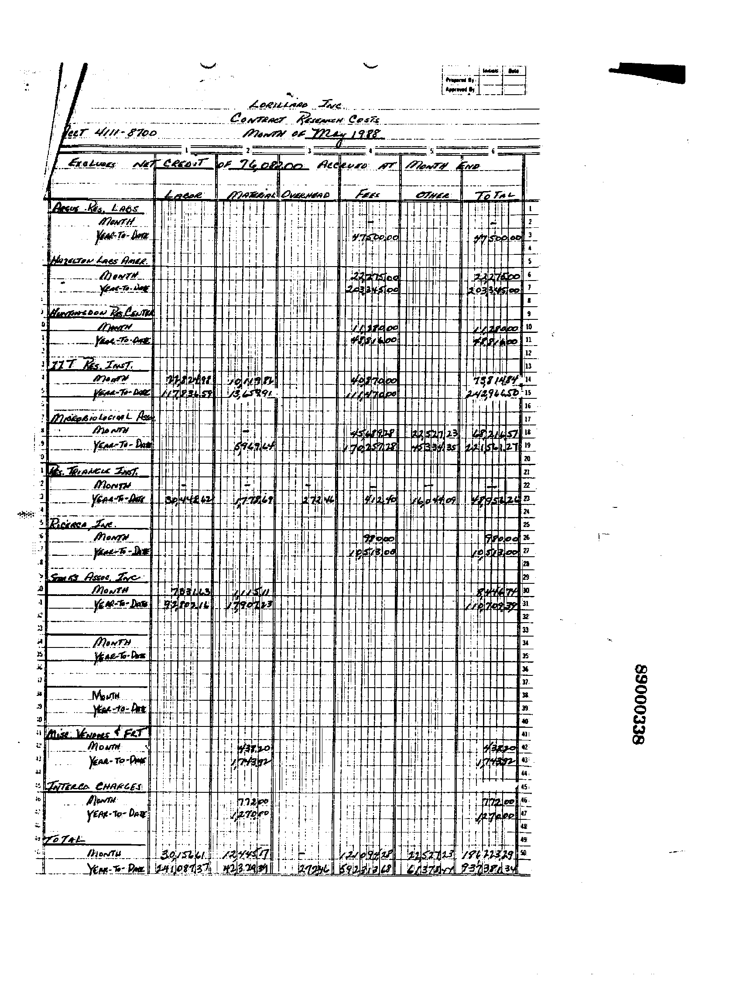 Initials Date
Prepared By
Approved By
LORILLARD INC
CONTRACT RESEARCH COSTS
MONTH OF May 1988
4111-8700
1 2 3 4 5 6
EXCLUDES NET CREDIT OF 76,082.00 ACCRUED AT MONTH END
LABOR MATERIAL OVERHEAD FEES OTHER TOTAL
ARGUS RES. LABS
MONTH - -
YEAR-TO-DATE 47500.00 47500.00
HAZELTON LABS AMER.
MONTH 22,275.00 22,275.00
YEAR-TO-DATE 203,345.00 203,345.00
HUNTINGDON RES CENTER
MONTH 11,280.00 11,280.00
YEAR-TO-DATE 48,816.00 48,816.00
IIT RES. INST.
MONTH 22,824.98 10,119.86 40,870.00 73,814.84
YEAR-TO-DATE 117,836.59 13,659.91 111,470.00 242,966.50
MICROBIOLOGICAL ASSO.
MONTH - 45,689.28 22,527.23 68,216.51
YEAR-TO-DATE 5,969.64 170,257.28 45,334.35 221,561.27
RES. TRIANGLE INST.
MONTH - - - - - -
YEAR-TO-DATE 30,448.62 1,778.69 272.46 412.40 16,044.09 48,956.26
RICERCA, INC.
MONTH 980.00 980.00
YEAR-TO-DATE 10,513.00 10,513.00
ASSOC, INC
MONTH 7,331.63 1,115.11 8,446.74
YEAR-TO-DATE 92,802.16 17,907.23 110,709.39
MONTH
YEAR-TO-DATE
MONTH
YEAR-TO-DATE
MISC. VENDORS & FRT
MONTH 438.20 438.20
YEAR-TO-DATE 1,743.92 1,743.92
INTERCO CHARGES
MONTH 772.00 772.00
YEAR-TO-DATE 1,270.00 1,270.00
TOTAL
MONTH 30,156.61 12,445.17 - 121,094.28 22,527.23 186,223.29
YEAR-TO-DATE 241,087.37 42,329.39 272.46 592,313.68 61,378.44 937,381.34
89000338